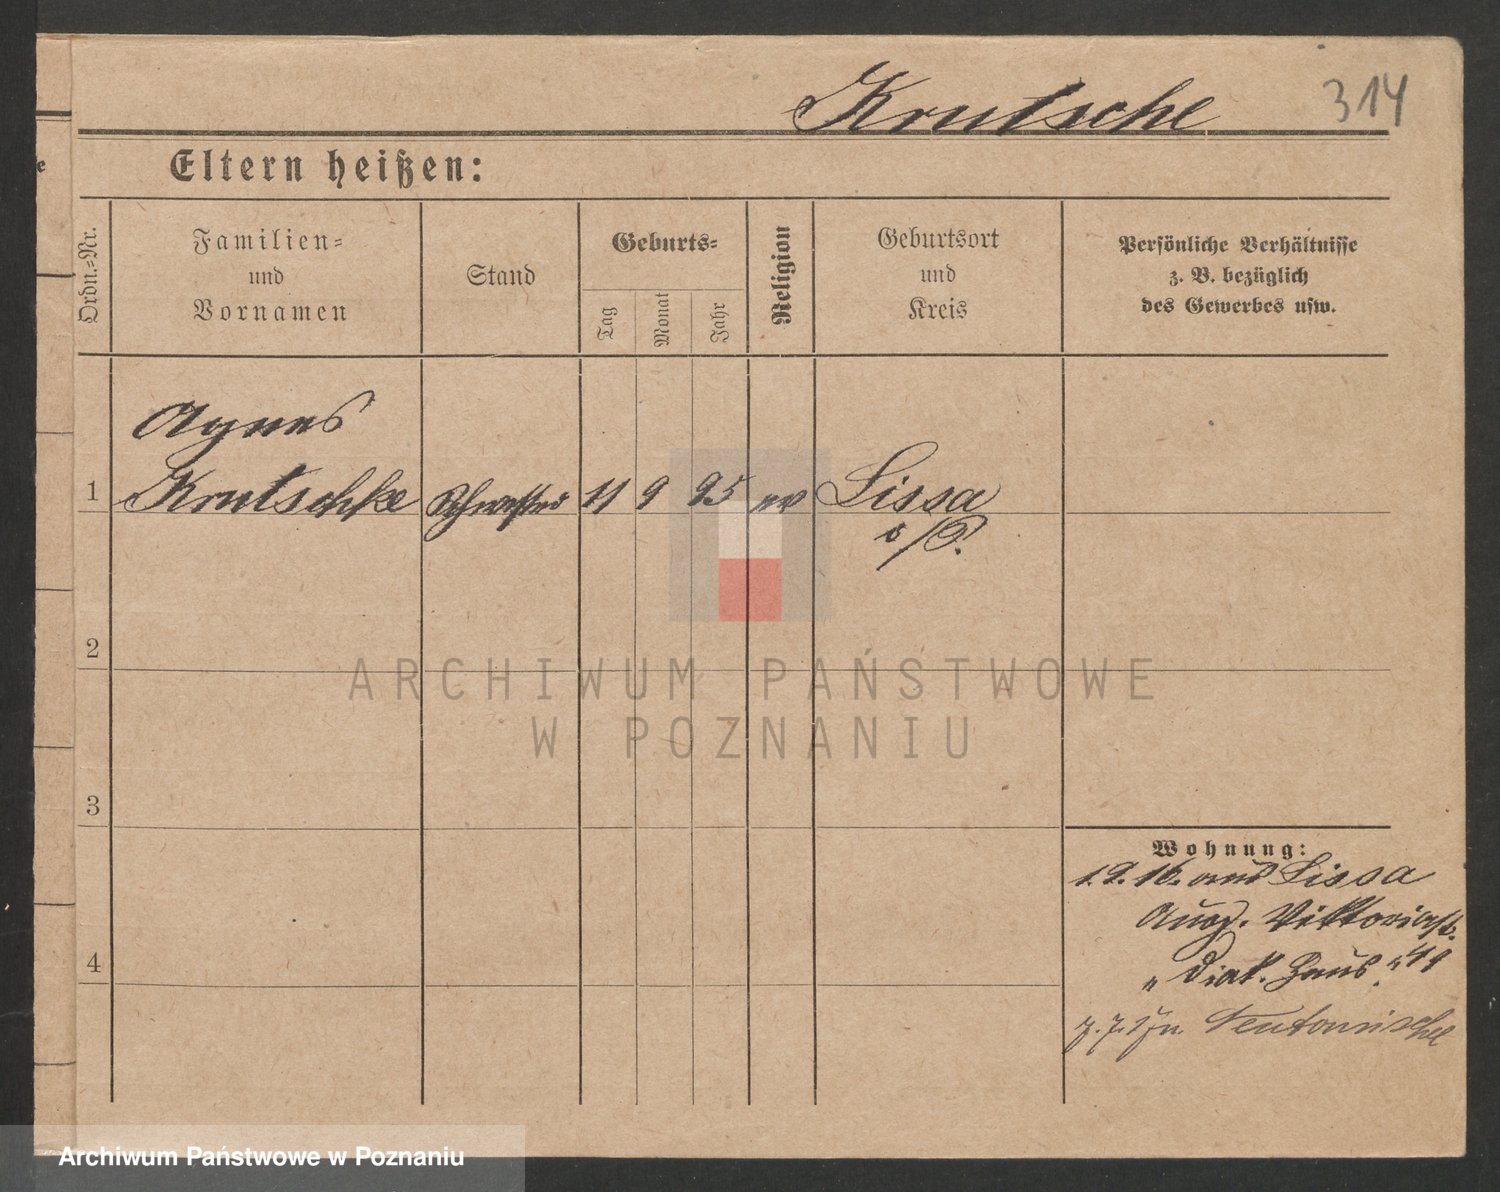 Krutsche 314
Eltern heißen:
Ordn.-Nr.
Familien-
und
Vornamen
Stand
Geburts-
Tag
Monat
Jahr
Religion
Geburtsort
und
Kreis
Persönliche Verhältnisse
z. B. bezüglich
des Gewerbes usw.
e
Agnes
1 Krutschke Schwester 11 9 95 ev Lissa
i/P.
2
3
4
Wohnung:
1.9.16. aus Lissa
Aug. Viktoriastr.
"Diak. Haus"
Neutomischel
ARCHIWUM PAŃSTWOWE
W POZNANIU
Archiwum Państwowe w Poznaniu